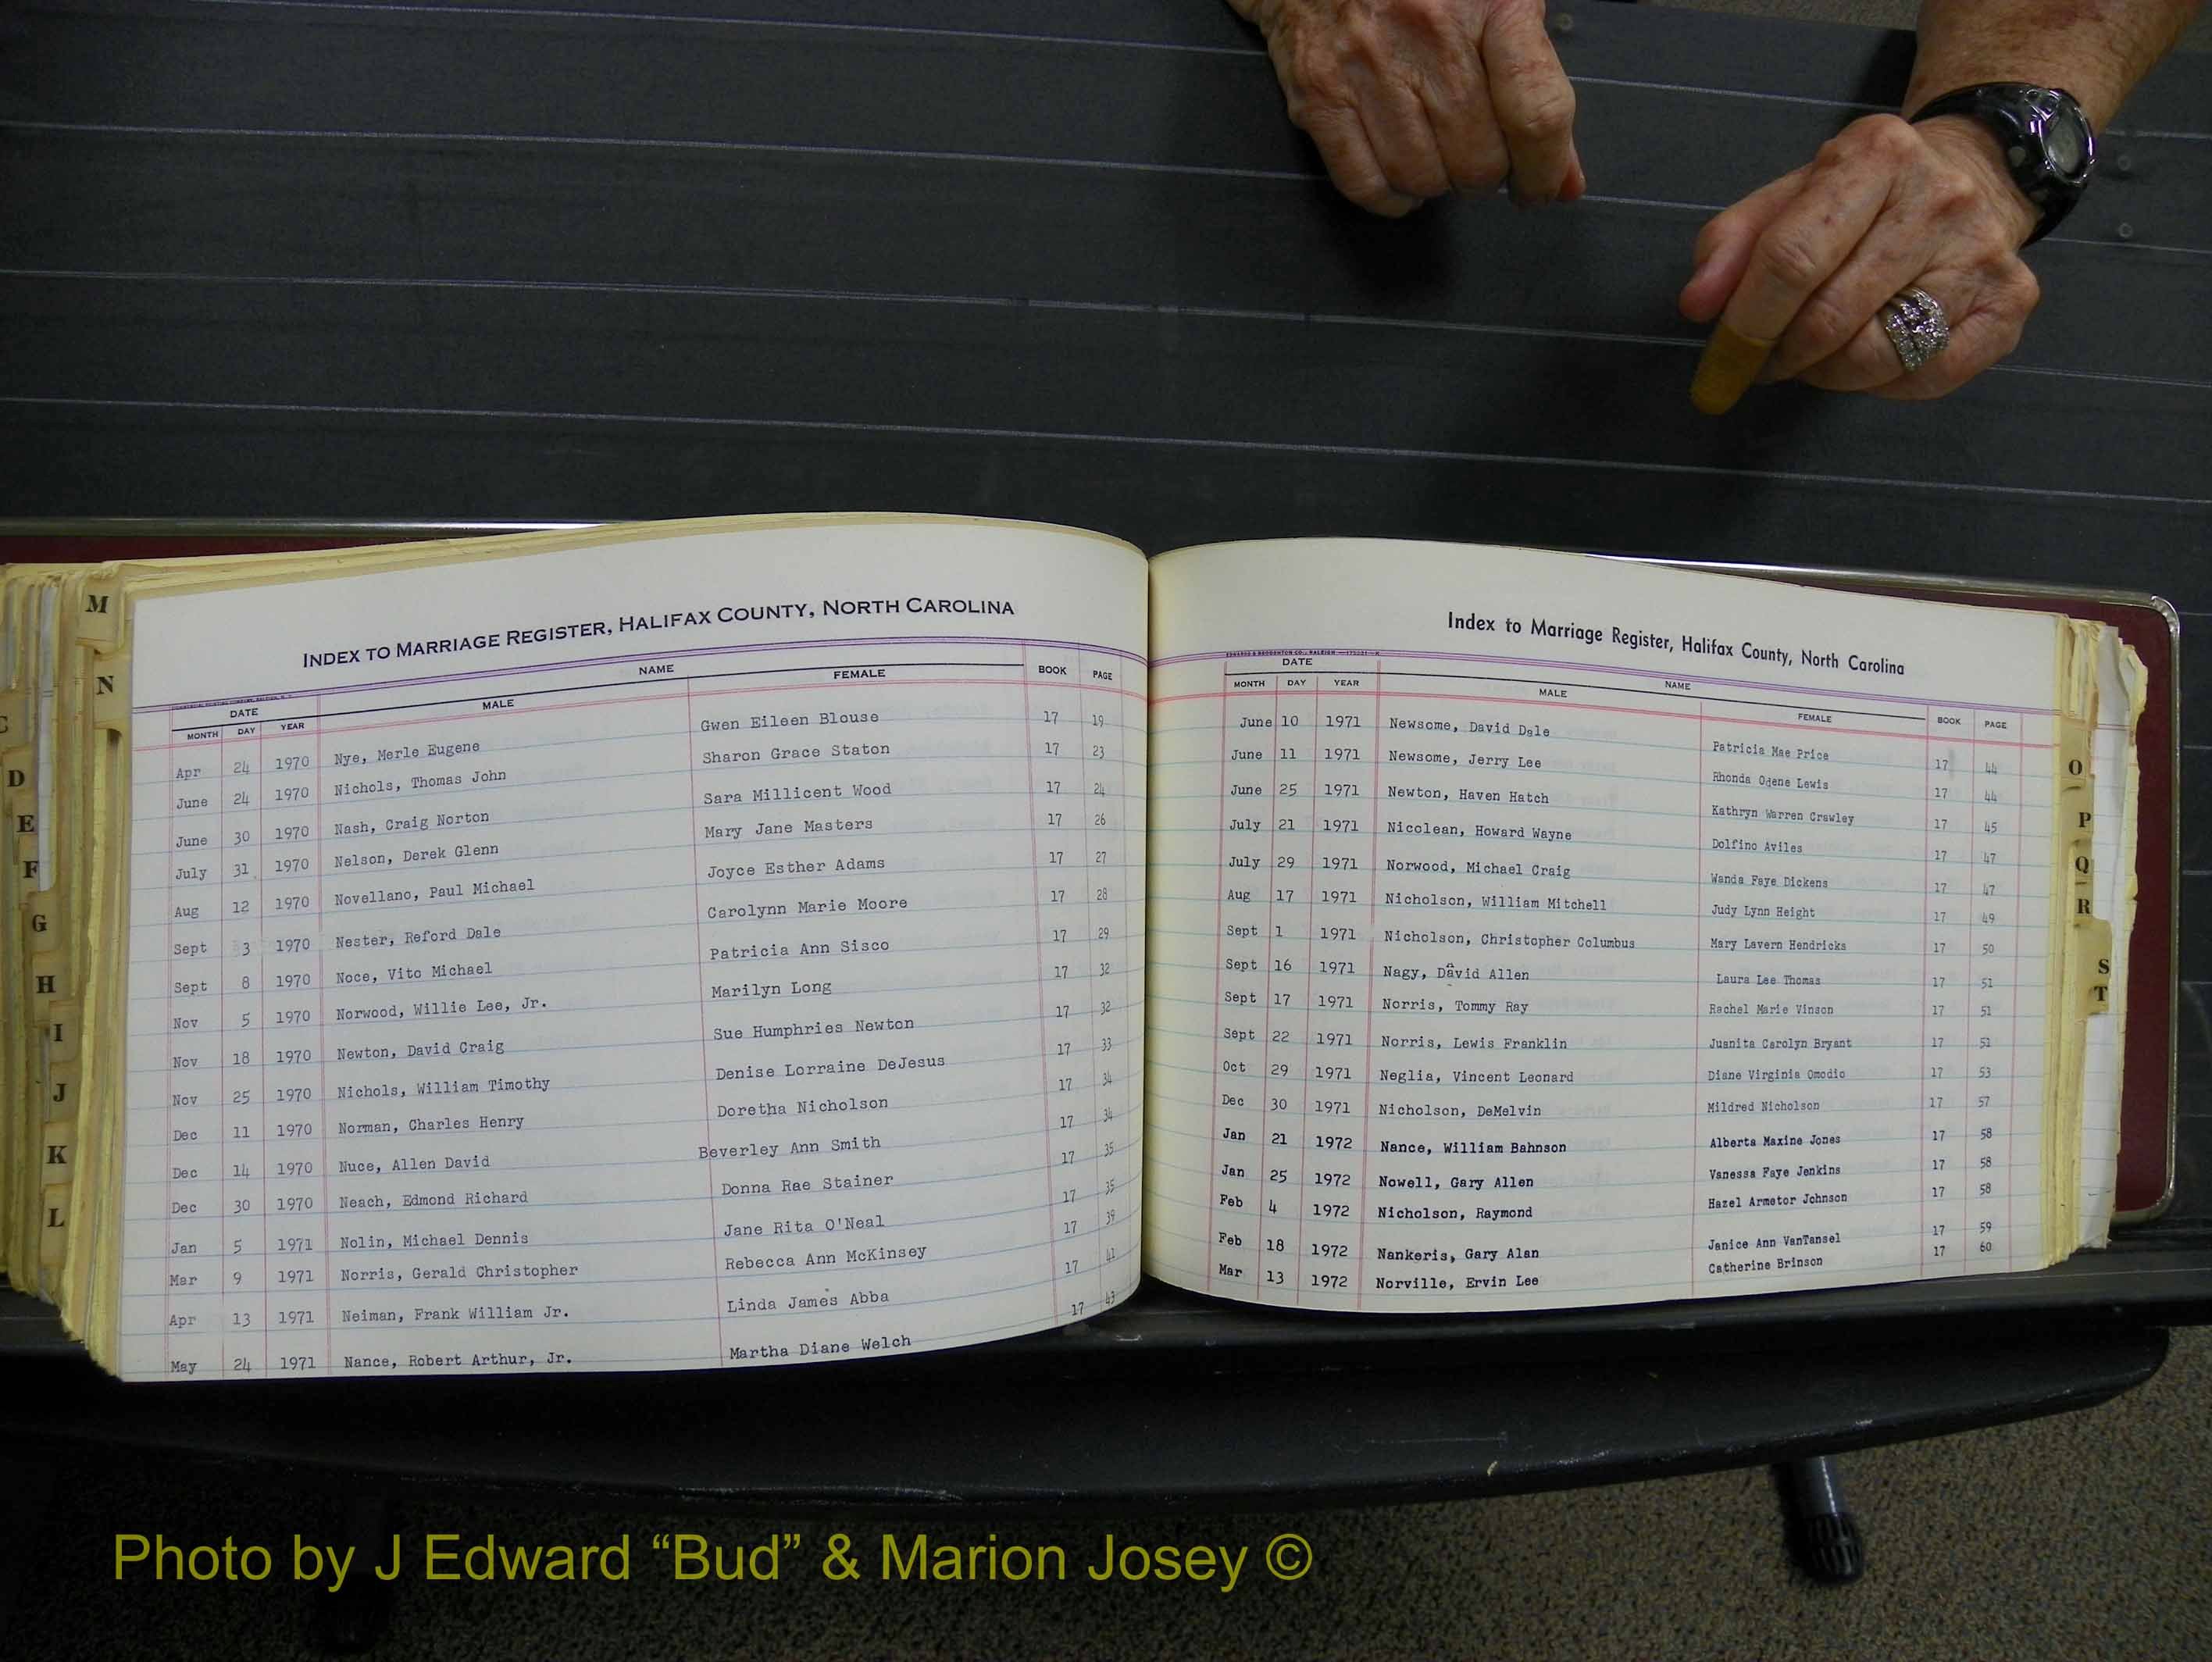 INDEX TO MARRIAGE REGISTER, HALIFAX COUNTY, NORTH CAROLINA
DATE NAME BOOK PAGE
MONTH DAY YEAR MALE FEMALE
Apr 24 1970 Nye, Merle Eugene Gwen Eileen Blouse 17 19
June 24 1970 Nichols, Thomas John Sharon Grace Staton 17 23
June 30 1970 Nash, Craig Norton Sara Millicent Wood 17 24
July 31 1970 Nelson, Derek Glenn Mary Jane Masters 17 26
Aug 12 1970 Novellano, Paul Michael Joyce Esther Adams 17 27
Sept 3 1970 Nester, Reford Dale Carolynn Marie Moore 17 28
Sept 8 1970 Noce, Vito Michael Patricia Ann Sisco 17 29
Nov 5 1970 Norwood, Willie Lee, Jr. Marilyn Long 17 32
Nov 18 1970 Newton, David Craig Sue Humphries Newton 17 32
Nov 25 1970 Nichols, William Timothy Denise Lorraine DeJesus 17 33
Dec 11 1970 Norman, Charles Henry Doretha Nicholson 17 34
Dec 14 1970 Nuce, Allen David Beverley Ann Smith 17 34
Dec 30 1970 Neach, Edmond Richard Donna Rae Stainer 17 35
Jan 5 1971 Nolin, Michael Dennis Jane Rita O'Neal 17 35
Mar 9 1971 Norris, Gerald Christopher Rebecca Ann McKinsey 17 39
Apr 13 1971 Neiman, Frank William Jr. Linda James Abba 17 41
May 24 1971 Nance, Robert Arthur, Jr. Martha Diane Welch 17 43
Index to Marriage Register, Halifax County, North Carolina
DATE NAME
MONTH DAY YEAR MALE FEMALE BOOK PAGE
June 10 1971 Newsome, David Dale Patricia Mae Price 17 44
June 11 1971 Newsome, Jerry Lee Rhonda Ogene Lewis 17 44
June 25 1971 Newton, Haven Hatch Kathryn Warren Crawley 17 45
July 21 1971 Nicolean, Howard Wayne Dolfino Aviles 17 47
July 29 1971 Norwood, Michael Craig Wanda Faye Dickens 17 47
Aug 17 1971 Nicholson, William Mitchell Judy Lynn Height 17 49
Sept 1 1971 Nicholson, Christopher Columbus Mary Lavern Hendricks 17 50
Sept 16 1971 Nagy, David Allen Laura Lee Thomas 17 51
Sept 17 1971 Norris, Tommy Ray Rachel Marie Vinson 17 51
Sept 22 1971 Norris, Lewis Franklin Juanita Carolyn Bryant 17 51
Oct 29 1971 Neglia, Vincent Leonard Diane Virginia Omodio 17 53
Dec 30 1971 Nicholson, DeMelvin Mildred Nicholson 17 57
Jan 21 1972 Nance, William Bahnson Alberta Maxine Jones 17 58
Jan 25 1972 Nowell, Gary Allen Vanessa Faye Jenkins 17 58
Feb 4 1972 Nicholson, Raymond Hazel Armetor Johnson 17 58
Feb 18 1972 Nankeris, Gary Alan Janice Ann VanTansel 17 59
Mar 13 1972 Norville, Ervin Lee Catherine Brinson 17 60
M
N
D
E
F
G
H
I
J
K
L
O
P
Q
R
S
T
Photo by J Edward “Bud” & Marion Josey ©